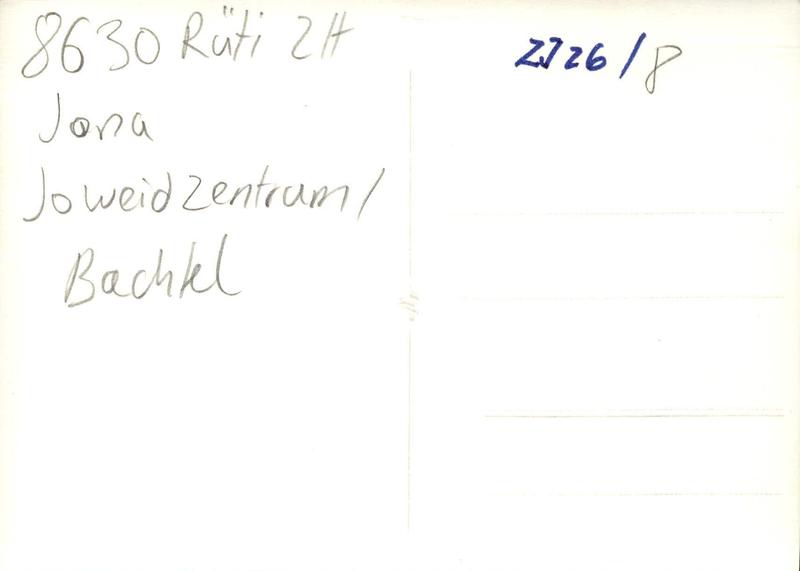 8630 Rüti ZH
Jona
Joweidzentrum/
Bachtel
ZJ26/8